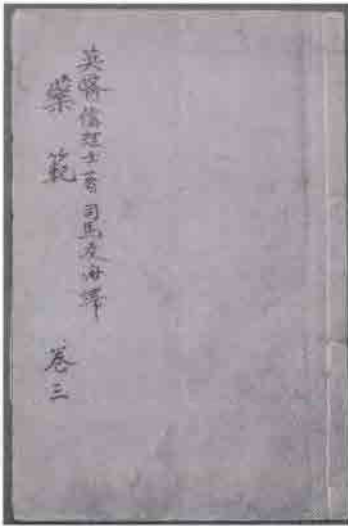 英醫倫理士著 司馬 譯
藥範 卷三